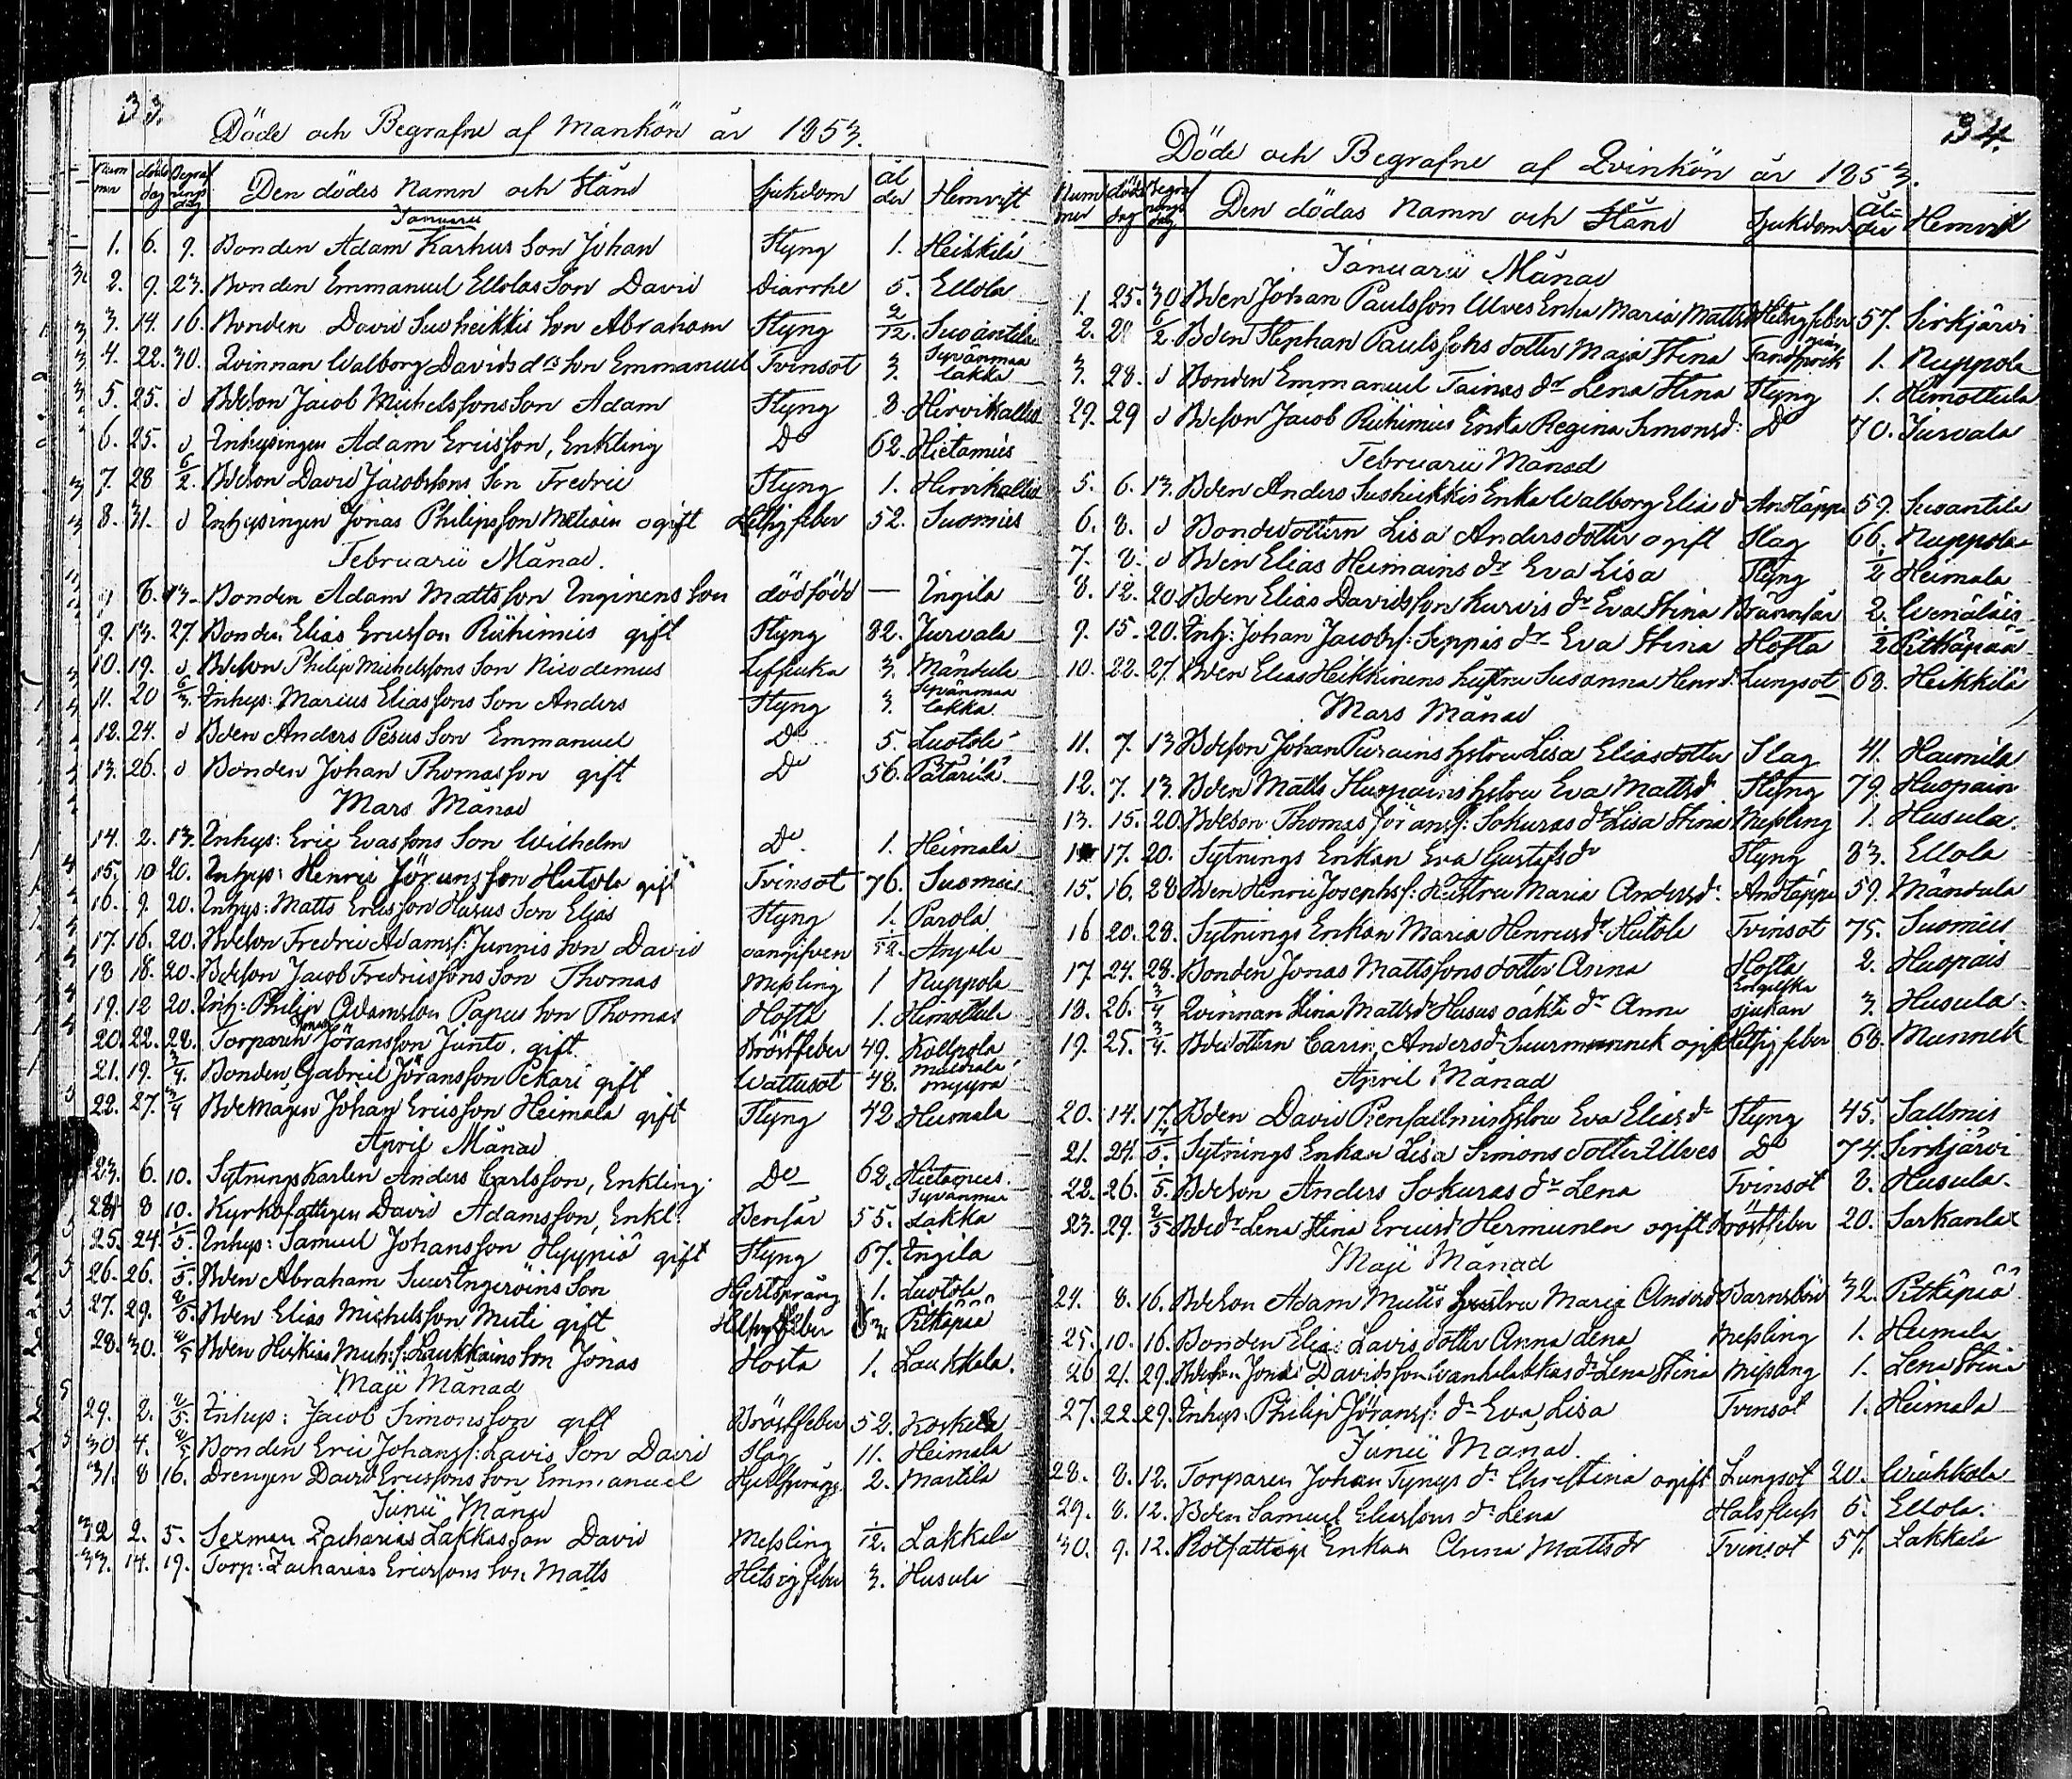 33.
Döde och Begrafne af Mankön år 1853.
Num mer döds dag Begraf nings dag Den dödes Namn och Stånd Sjukdom ål der Hemvist
Januarii
1. 6. 9. Bonden Adam Karhus Son Johan Styng 1. Heikkilä
2. 9. 23. Bonden Emmanuel Ellolas Son David Diarrhe 5. Ellola
3. 14. 16. Bonden David Susheikkis Son Abraham Styng 2/12. Suoantila
4. 22. 30. Qvinnan Walborg Davids drs Son Emmanuel Tvinsot 3. Syvänmaa lakka
5. 25. d Bdeson Jacob Michelssons Son Adam Styng 8 Hirvikallio
6. 25. d Inhysingen Adam Ericsson, Enkling Do 62. Hietamies
7. 28 6/2. Bdeson David Jacobssons Son Fredric Styng 1. Hirvikallio
8. 31. d Inhysingen Jonas Philipsson ogift Hetsig feber 52. Suomies
Februarii Månad.
8. 13. Bonden Adam Mattsson Inginens Son dödfödd — Ingila
9. 13. 27. Bonden Elias Ericsson Riihimies gift Styng 82. Jurvala
10. 19. d Bdeson Philip Michelssons Son Nicodemus 3. Mändula
11. 20 6/3. Inhys: Marius Eliassons Son Anders Styng 3. Syvänmaa lakka
12. 24. d Bden Anders Pesus Son Emmanuel Do 5. Luotola
13. 26. d Bonden Johan Thomasson gift Do 56. Patarila
Mars Månad
14. 2. 13. Inhys: Eric Evassons Son Wilhelm Do 1. Heimala
15. 10 20. Inhys: Henric Jöransson Hutola gift Tvinsot 76. Suomies
16. 9. 20. Inhys: Matts Ericsson Husus Son Elias Styng 1. Parola
17. 16. 20. Bdeson Fredric Adamss: Junnis Son David oangifven 1/12. Anjala
18 18. 20. Bdeson Jacob Fredricssons Son Thomas Messling 1 Nuppola
19. 12 20. Inh: Philip Adamsson Papus Son Thomas Hosta 1. Himottula
20. 22. 28. Torparen Jonas Jöransson Junto. gift Bröstfeber 49. Kollpola
21. 19. 3/4. Bonden Gabriel Jöransson Pekari gift Wattusot 48. myyrä
22. 27. 3/4 Bdemågen Johan Ericsson Heimala gift Styng 42 Heimala
April Månad
23. 6. 10. Sytningskarlen Anders Carlsson, Enkling Do 62. Hietamies.
24 8 10. Kyrkofattigen David Adamsson, Enkl: Bensår 55. Syvänmaa Lakka
25. 24. 1/5. Inhys: Samuel Johansson Hyyniä gift Styng 67. Ingila
26. 26. 1/5. Bden Abraham Suur Ingeröins Son Hjertsprång 1. Luotola
27. 29. 8/5. Bden Elias Michelsson Muti gift Hetsig feber Pitkäpää
28. 30. 8/5 Bden Heskias Mich:s: Laukkains Son Jonas Hosta 1. Laukkala.
Maji Månad
29. 2. 8/5. Inhys: Jacob Simonsson gift Bröstfeber 52. Koskela
30. 4. 8/5 Bonden Eric Johanss: Lavis Son David Slag 11. Heimala
31. 8 16. Drengen David Ericssons Son Emmanuel Hjertsprång. 2. Martila
Junii Månad
32 2. 5. Sexman Zacharias Lakkas Son David Messling 1/12. Lakkala
33. 14. 19. Torp: Zacharias Ericssons Son Matts Hetsig feber 3. Husula
34.
Döde och Begrafne af Qvinkön år 1853.
Num mer döds dag Begraf nings dag Den dödas Namn och Stånd Sjukdom ål- der Hemvist
Januarii Månad
1. 25. 30 Bden Johan Paulsson Ulves Enka Maria Mattsdr Hetsig feber 57. Sirkjärvi
2. 28 6/2. Bden Stephan Paulssons dotter Maja Stina Tandsprick 1. Nuppola
3. 28. d Bonden Emmanuel Tainas dr Lena Stina Styng 1. Himottula
29. 29 d Bdeson Jacob Riihimies Enka Regina Simonsd: Do 70. Jurvala
Februarii Månad
5. 6. 13. Bden Anders Susheikkis Enka Walborg Elias d Andtäppa 59. Suoantila
6. 8. d Bondedottern Lisa Andersdotter ogift Slag 66. Nuppola
7. 8. d Bden Elias Heimains dr Eva Lisa Styng 1/2 Heimala
8. 12. 20 Bden Elias Davidsson Kurvis dr Eva Stina Brännsår 2. Wenäläis
9. 15. 20. Inh: Johan Jacobs: Seppäs dr Eva Stina Hosta 1/2 Pitkäpää
10. 22. 27. Bden Elias Heikkinens hustru Susanna Henrd. Lungsot 68. Heikkilä
Mars Månad
11. 7. 13 Bdeson Johan Purains hstru Lisa Eliasdotter Slag 41. Haimila
12. 7. 13. Bden Matts Huopains hstru Eva Mattsd. Styng 79. Huopain
13. 15. 20. Bdeson Thomas Jöranss: Sokuras dr Lisa Stina Messling 1. Husula.
17. 20. Sytnings Enkan Eva Gustafs dr Styng 83. Ellola
15. 16. 28 Bden Henric Josephss: Hustru Maria Andersd: Andtäppa 59. Mändula
16 20. 28. Sytnings Enkan Maria Henricsdr Hutola Tvinsot 75. Suomies
17. 24. 28. Bonden Jonas Mattssons dotter Anna Hosta 2. Huopais
18. 26. 3/4 Qvinnan Stina Mattsdr Husus oäkta dr Anna Engelska sjukan 3. Husula.
19. 25. 3/4. Bdedottern Carin Andersdr Suurmunnuk ogift Hetsig feber 68. Munnuk
April Månad
20. 14. 17. Bden David Piensallmins hstru Eva Eliasdr Styng 45. Sallmis
21. 24. 1/5. Sytnings Enkan Lisa Simonsdotter Ulves Do 74. Sirkjärvi
22. 26. 1/5. Bdeson Anders Sokuras dr Lena Tvinsot 8. Husula.
23. 29. 8/5 Bdedr Lena Stina Ericsd Hermunen ogift Bröstfeber 20. Sarkanlax
Maji Månad
24. 8. 16. Bdeson Adam Mutis hustru Maria Andersd Barnsbörd 32. Pitkäpää
25. 10. 16. Bonden Elias Lavis dotter Anna Lena Messling 1. Heimala
26 21. 29. Bdeson Jonas Davidsson Wanhalakkas dr Lena Stina Messling 1. Lena Stina
27. 22. 29. Inhys: Philip Jöranss: dr Eva Lisa Tvinsot 1. Heimala
Junii Månad.
28. 8. 12. Torparen Johan Tynys dr Christina ogift Lungsot 20. Wiukkala
29. 8. 12. Bden Samuel Eliassons dr Lena Halsfluss 5. Ellola.
30. 9. 12. Rotfattige Enkan Anna Mattsdr Tvinsot 57. Lakkala